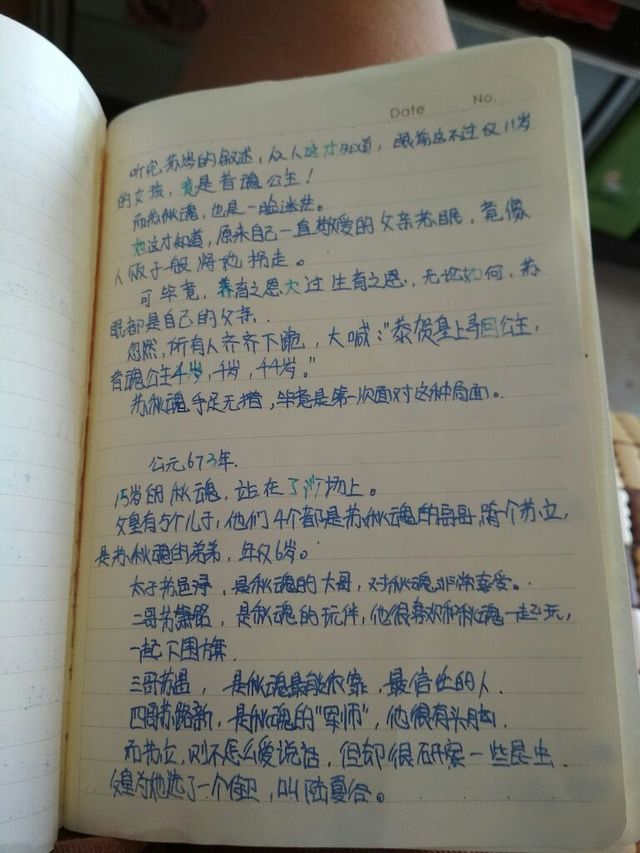 Date No.
听完苏岩的叙述，众人这才知道，眼前这不过仅11岁
的女孩，竟是首魂公主！
而苏秋魂，也是一脸迷茫。
她这才知道，原来自己一直敬爱的父亲苏眠，竟像
人贩子一般将她拐走。
可毕竟，养育之恩大过生育之恩，无论如何，苏
眠都是自己的父亲．
忽然，所有人齐齐下跪，大喊："恭贺皇上寻回公主，
首魂公主千岁，千岁，千千岁。"
苏秋魂手足无措，毕竟是第一次面对这种局面。
公元673年．
15岁的秋魂，站在了 场上。
父皇有5个儿子，他们4个都是苏秋魂的哥哥，隔个苏立，
是苏秋魂的弟弟，年仅6岁。
太子苏邑浔，是秋魂的大哥，对秋魂非常喜爱。
二哥苏萧铭，是秋魂的玩伴，他很喜欢和秋魂一起玩，
一起下围旗．
三哥苏温，是秋魂最 ，最信任的人．
四哥苏路新，是秋魂的"军师"，他很有头脑．
而苏立，则不怎么爱说话，但却很研察一些昆虫．
父皇为她选了一个 ，叫陆夏合。